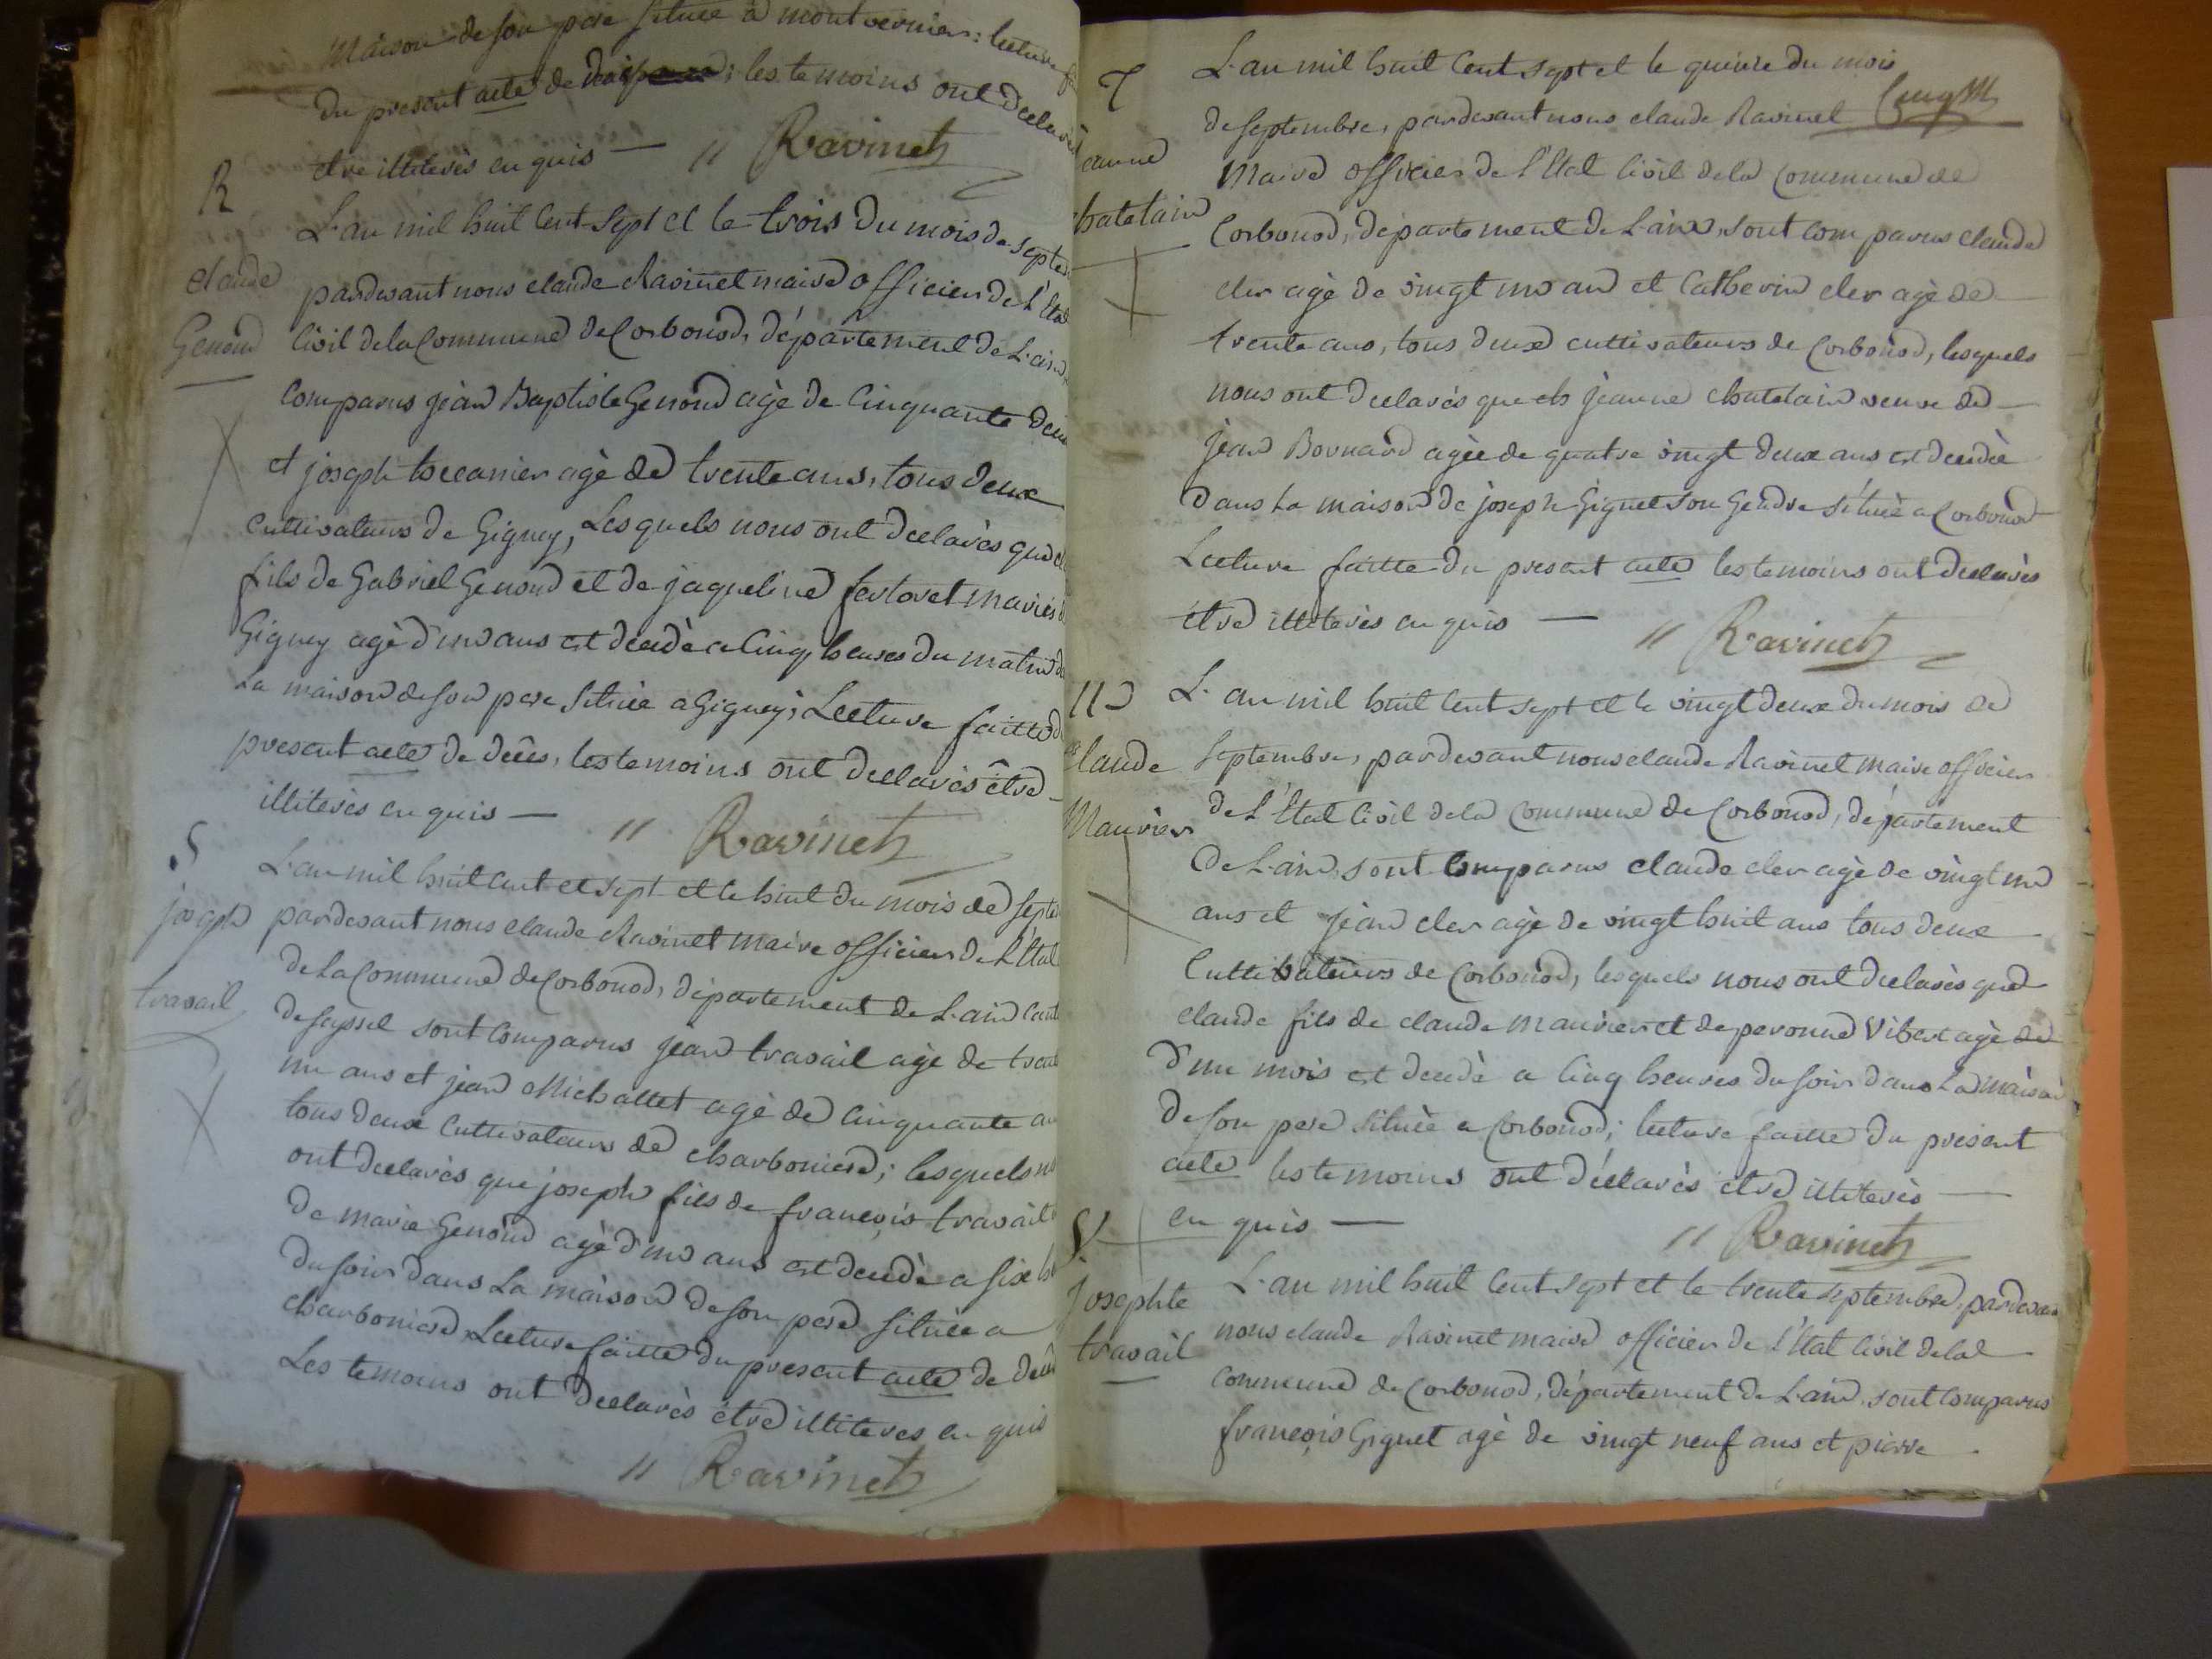 Maison de son pere située à montvernier: lecture f
du present acte de ; les temoins ont declarés
etre illiterés en quis — " Ravinet
R
claude
Genoud
L'an mil huit cent sept et le trois du mois de septe
pardevant nous claude Ravinet maire officier de l'Etat
Civil de la Commune de Corbonod, département de L'ain
comparus jean Baptiste Genoud agè de Cinquante deux
et joseph toccanier agè de trente ans, tous deux
Cultivateurs de Gigney, Lesquels nous ont declarès que cl
fils de Gabriel Genoud et de jaqueline fertoret mariés
Gigney agè d'un ans est decedè a Cinq heures du matin d
La maison de son pere Située a Gigney; Lecture faitte d
present acte de decès, les temoins ont declarès être
illiterès en quis — " Ravinet
S
joseph
travail
L'an mil huit cent et sept et le huit du mois de septe
pardevant nous claude Ravinet maire officier de L'Etat
de La Commune de Corbonod, département de L'ain Cant
de seyssel sont Comparus jean travail agè de trent
un ans et jean Michallet agè de cinquante an
tous deux Cultivateurs de charboniere; lesquels n
ont declarès que joseph fils de françois travail
de marie Genoud agè d'un ans est decedè a six h
du soir dans La maison de son pere située a
charboniere, Lecture faitte du present acte de dece
Les temoins ont declarès être illiteres en quis
" Ravinet
T
eanne
hatelain
L'an mil huit Cent sept et le quinze du mois
de septembre, pardevant nous claude Ravinet
Maire officier de l'Etat Civil de la Commune de
Corbonod, departement de L'ain, sont comparus claude
cler agè de vingt un an et Catherin cler agè de
trente ans, tous deux cultivateurs de Corbonod, lesquels
nous ont declarès que jeanne chatelain veuve de
jean Bornard agèe de quatre vingt deux ans est decedèe
dans La maison de joseph Gignet son Gendre située a Corbonod
Lecture faitte du present acte les temoins ont declarès
être illiterès en quis — " Ravinet
U
claude
Maurier
L'an mil huit Cent sept et le vingt deux du mois de
Septembre, pardevant nous claude Ravinet maire officier
de L'Etat Civil de la Commune de Corbonod, département
De L'ain, sont Comparus claude cler agè de vingt un
ans et jean cler agè de vingt huit ans tous deux
Cultivateurs de Corbonod, lesquels nous ont declarès que
claude fils de claude maurier et de peronne Vibert agè de
d'un mois est decedè a Cinq heures du soir dans La maison
de son pere située a Corbonod; lecture faitte du present
acte les temoins ont déclarès etre illiterès —
en quis — " Ravinet
V
Josephte
travail
L'an mil huit Cent sept et le trente septembre, pardevan
nous claude Ravinet maire officier de l'Etat Civil de la
Commune de Corbonod, département de L'ain, sont Comparus
françois Gignet agè de vingt neuf ans et pierre